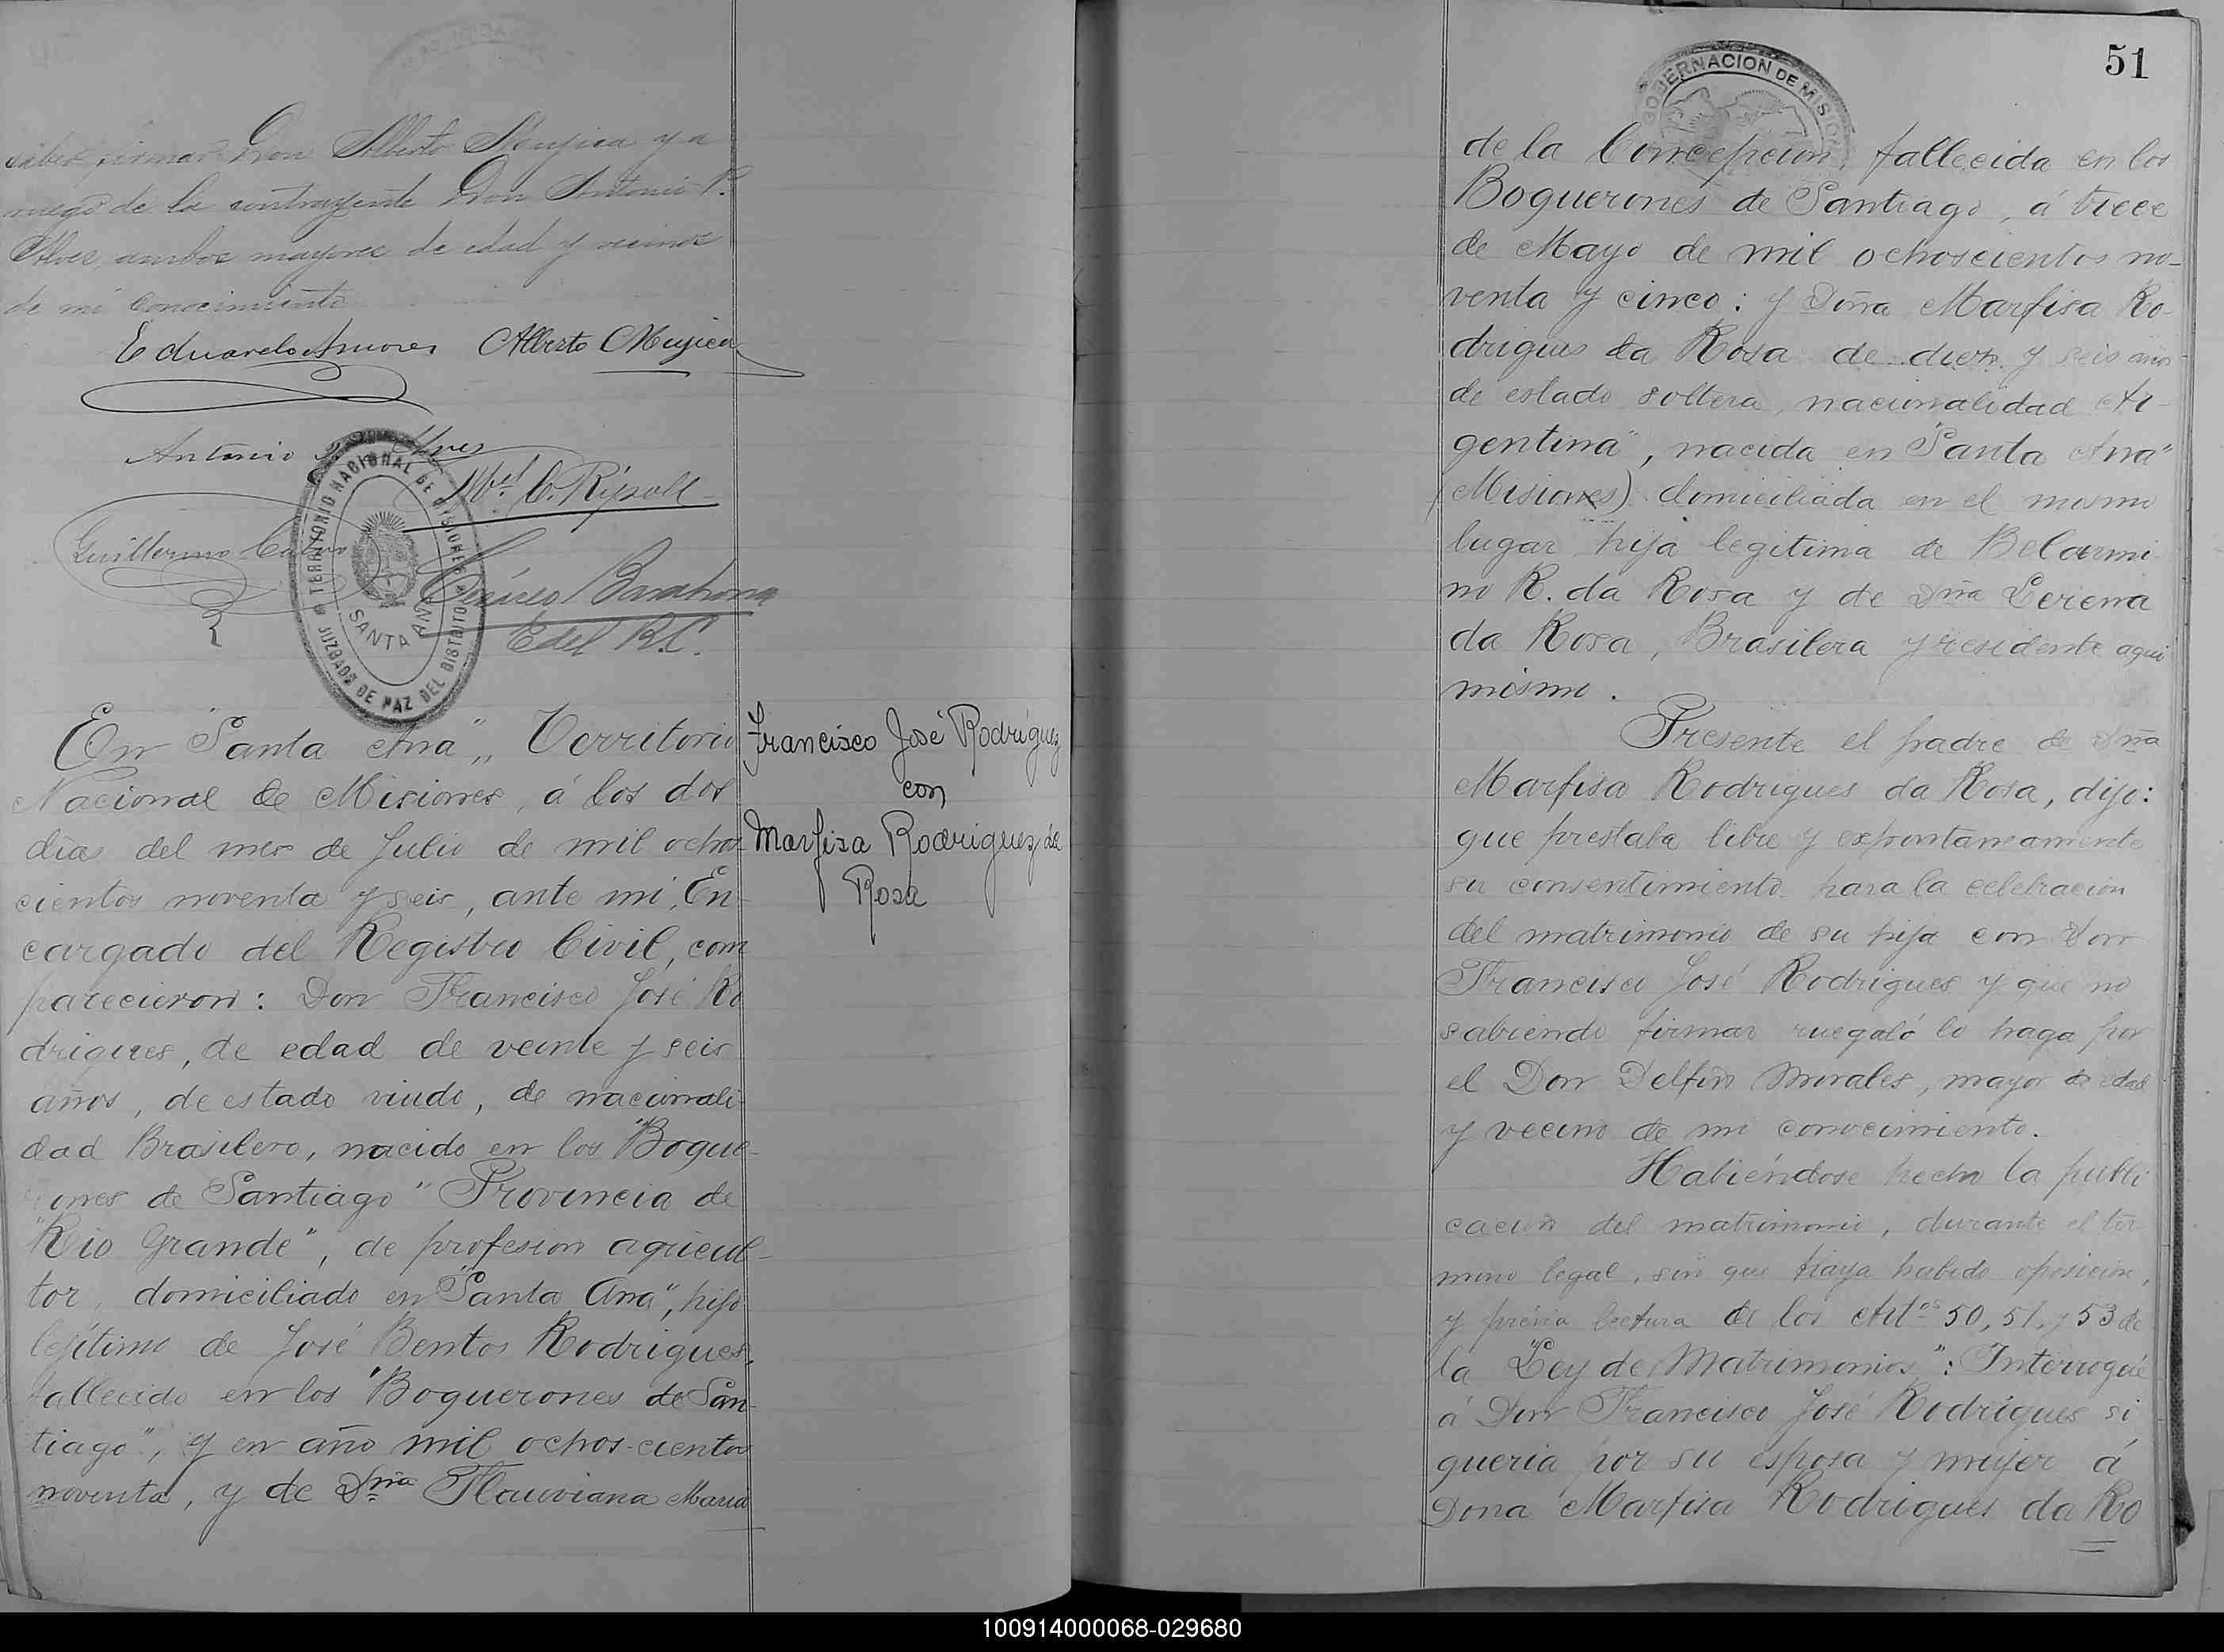 saber firmar Don Alberto Mujica y a
ruego de la contrayente Don Antonio P.
Alves, ambos mayores de edad y vecinos
de mi conocimiento
Eduardo Amores Alberto Mujica
Antonio Alves
Ml. C. Ripoll
Guillermo
Barahona
E del R.C.
TERRITORIO NACIONAL DE MISIONES
JUZGADO DE PAZ DEL DISTRITO
SANTA ANA
En "Santa Ana", Territorio
Nacional de Misiones, á los dos
dias del mes de Julio de mil ochos
cientos noventa y seis, ante mi, En-
cargado del Registro Civil, com
parecieron: Don Francisco José Ro
drigues, de edad de veinte y seis
años, de estado viudo, de nacionali-
dad Brasilero, nacido en los "Boque-
rones de Santiago" Provincia de
"Rio Grande", de profesion agricul-
tor, domiciliado en "Santa Ana", hijo
lejítimo de José Bentos Rodrigues,
fallecido en los "Boquerones de San-
tiago", y en año mil ochos-cientos
noventa, y de Dña Flauviana Maria
Francisco José Rodríguez
con
Marfisa Rodriguez da
Rosa
51
GOBERNACION DE MISIONES
de la Concepcion, fallecida en los
Boquerones de Santiago, á trece
de Mayo de mil ochoscientos no-
venta y cinco: y Doña Marfisa Ro-
drigues da Rosa de diez y seis años
de estado soltera, nacionalidad Ar-
gentina", nacida en "Santa Ana"
(Misiones) domiciliada en el mismo
lugar hija legitima de Belarmi
no R. da Rosa y de Dña Lerena
da Rosa, Brasilera y residente aqui
mismo.
Presente el padre de Dña
Marfisa Rodrigues da Rosa, dijo:
que prestaba libre y expontaneamente
su consentimiento para la celebracion
del matrimonio de su hija con Don
Francisco José Rodrigues y que no
sabiendo firmar ruegaló lo haga por
el Don Delfin Morales, mayor de edad
y vecino de mi conocimiento.
Habiéndose hecho la publi
cacion del matrimonio, durante el tér
mino legal, sin que haya habido oposicion,
y prévia lectura de los Artos 50, 51, y 53 de
la "Ley de Matrimonios": Interrogué
á Don Francisco José Rodrigues si
queria por su esposa y mujer á
Dona Marfisa Rodrigues da Ro
100914000068-029680